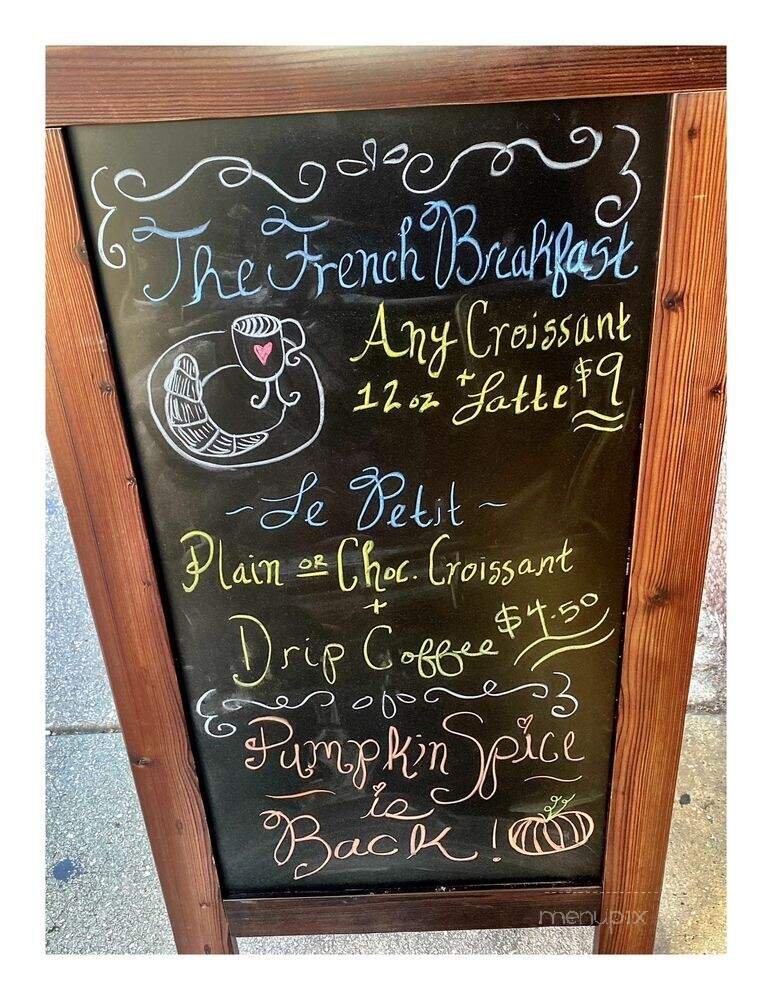 The French Breakfast
Any Croissant
+
12 oz Latte $9
~ Le Petit ~
Plain OR Choc. Croissant
+
Drip Coffee $4.50
Pumpkin Spice
is
Back!
menupix